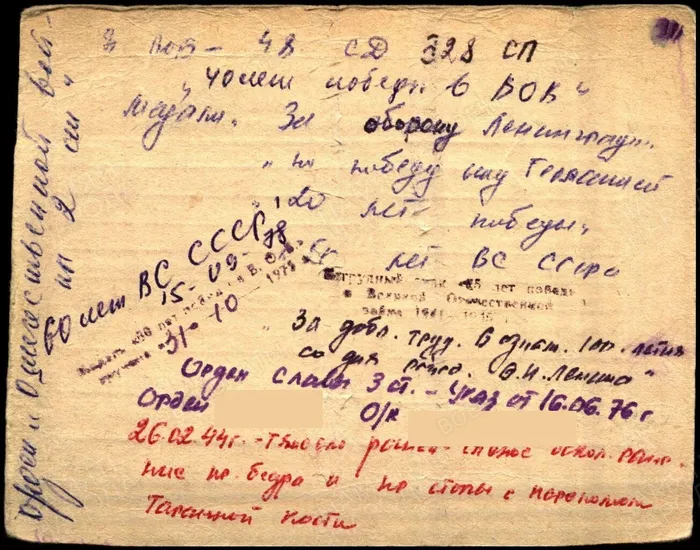 48 СД 328 СП
„40 лет победы в ВОВ“
Медали. За оборону Ленинграда.
" победу над Германией
" 20 лет победы
лет ВС СССР
60 лет ВС СССР
15-09-78
31-10-1975
Нагрудный знак «25 лет победы
в Великой Отечественной
войне 1941-1945
" За добл. труд. В ознам. 100-летия
со дня рожд. В.И. Ленина"
Орден Славы 3 ст. - Указ от 16.06.76 г
Орден О/К
26.02.44г. - тяжело ранен - оскол.
пр. бедра и пр. стопы с переломом
Таранной кости
Орден Отечественной вой-
ны 2 ст "